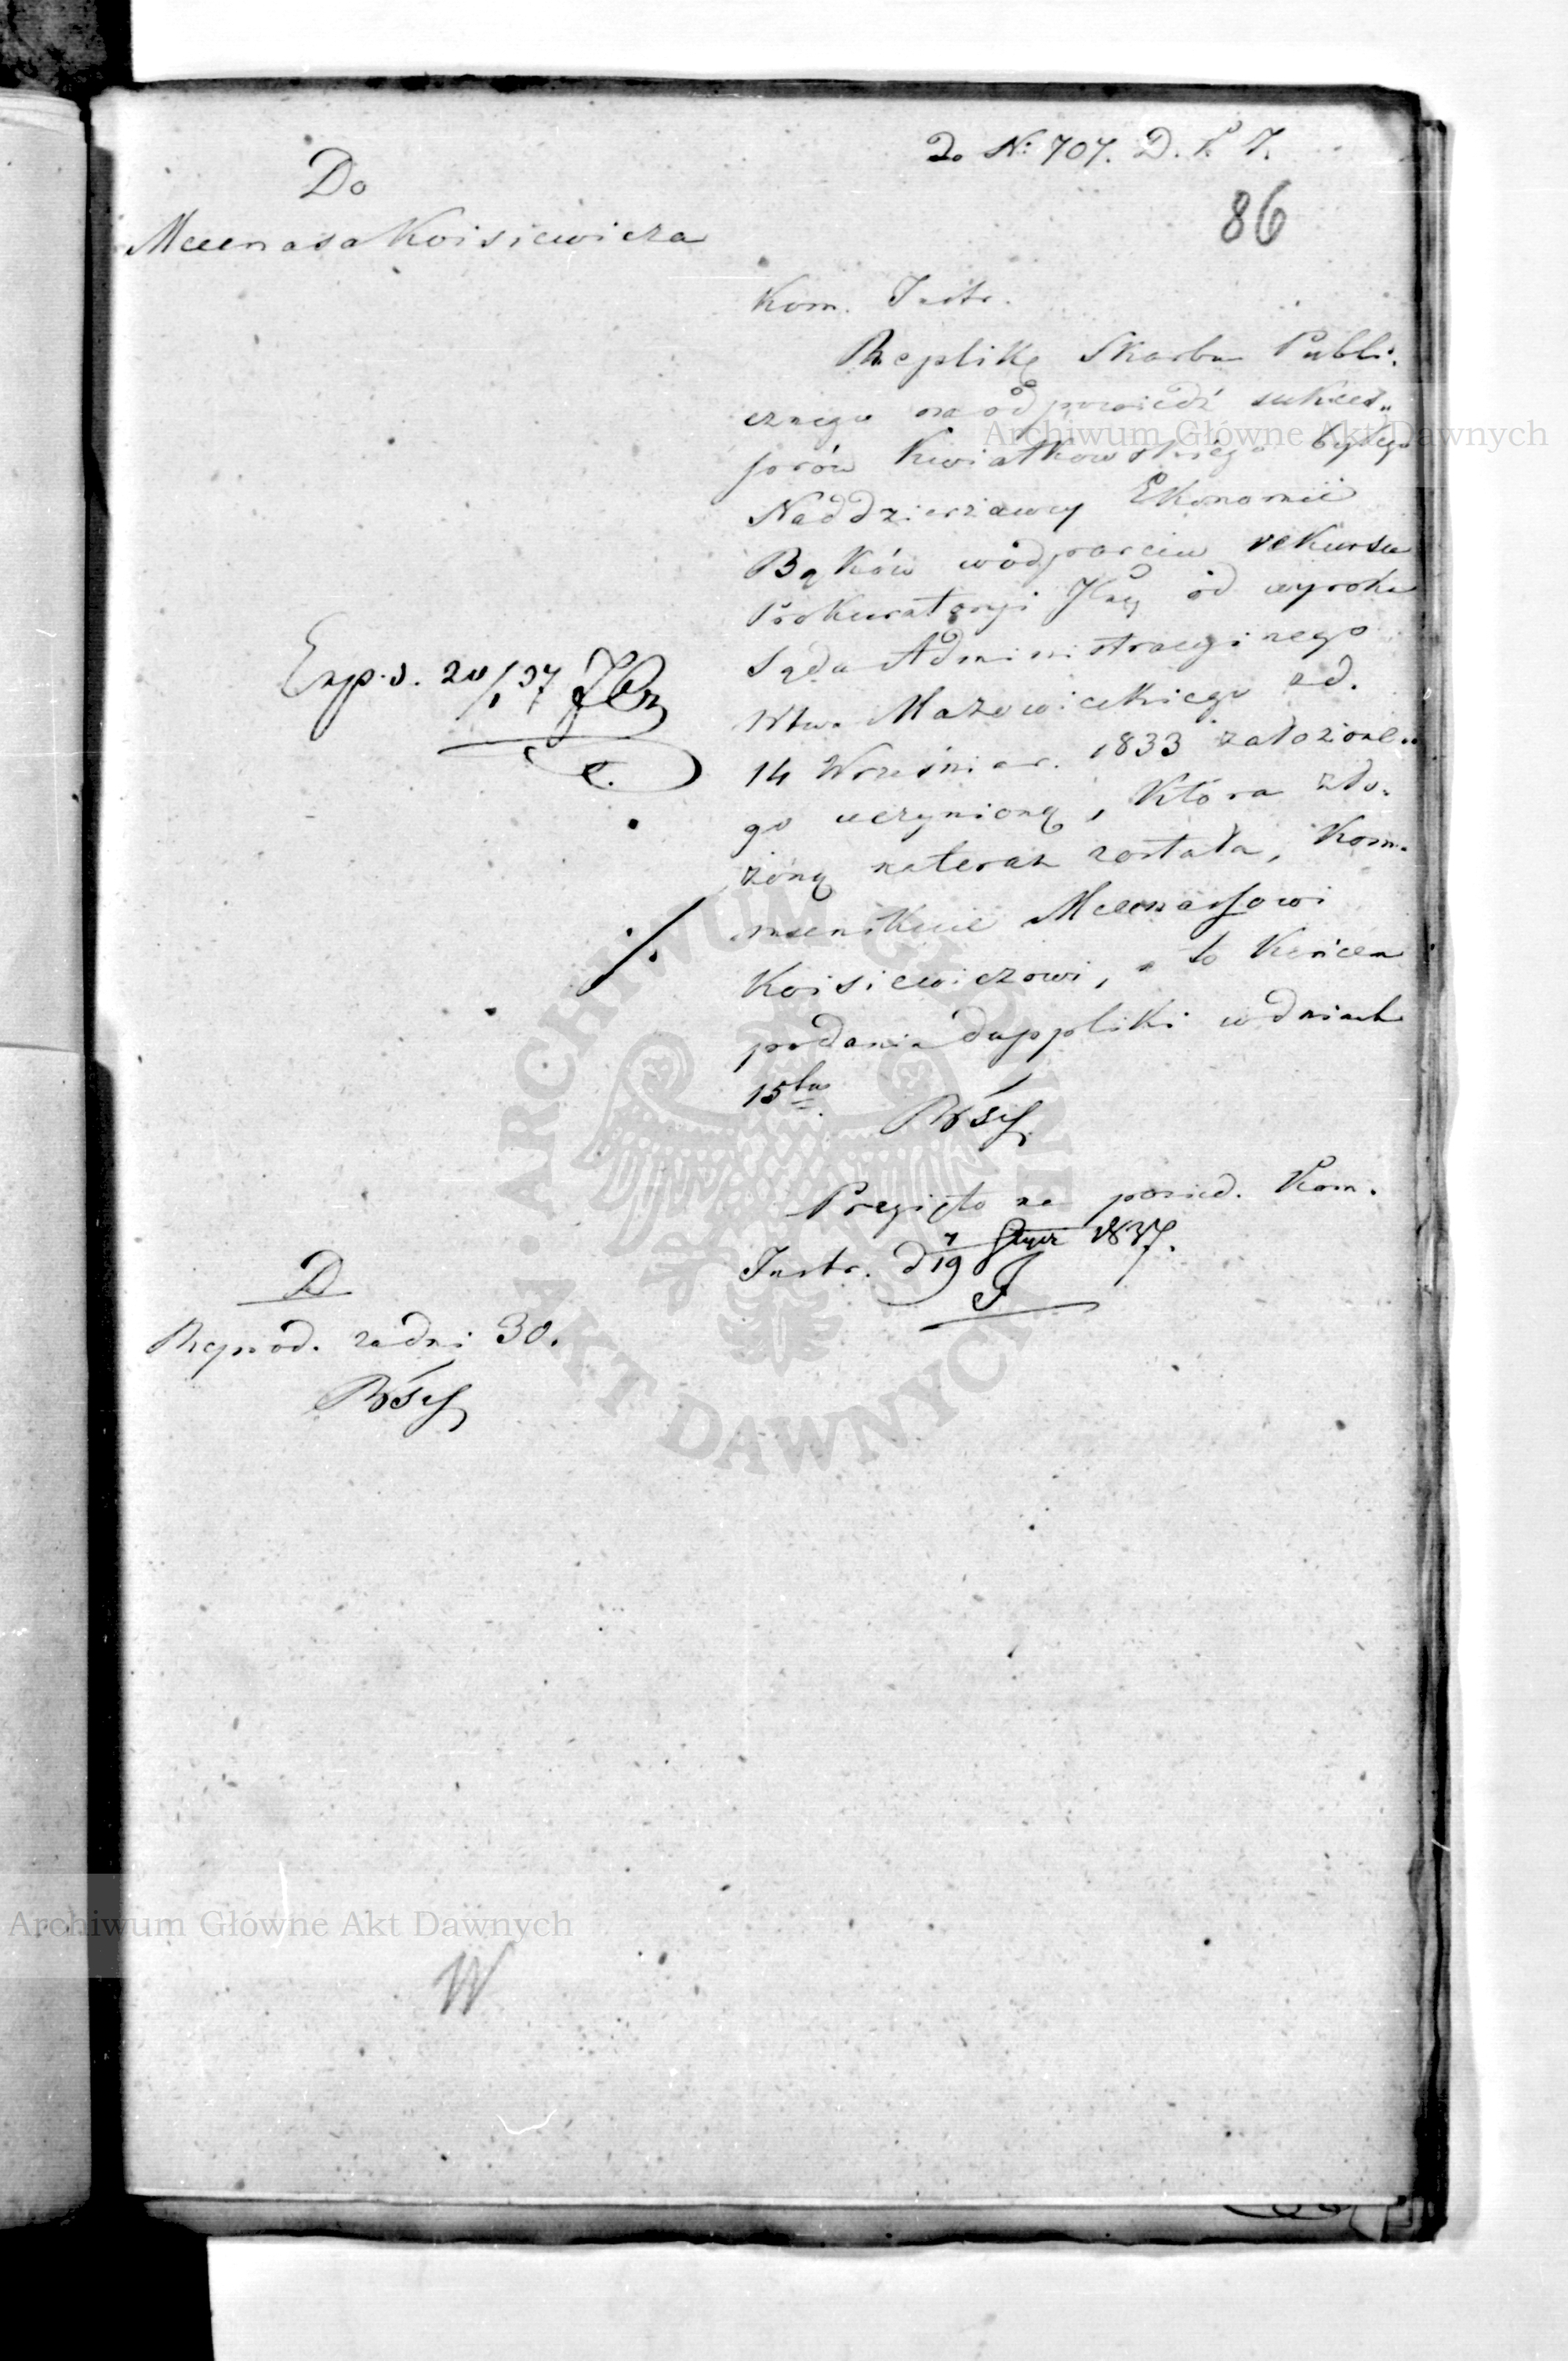 Do No 707. D. K. I.
86
Do
Mecenasa Koisiewicza
Kom. Instr.
Replikę Skarbu Publi-
cznego na odpowiedź sukces„
sorów Kwiatkowskiego byłego
Naddzierżawcy Ekonomii
Bąków w odparciu rekursu
Prokuratoryi od wyroku
Sądu Administracyjnego
Wtwa Mazowieckiego z d.
14 Września r. 1833 założone„
go uczynioną, która zło-
żoną nateraz została, Kom.
Mecenassowi
Koisiewiczowi, to końcem
podania duppliki w dniach
15tu
Exp. d. 20/1 37
Przyięto na posied. Kom.
Instr. d 7/19 Stycz 1837.
D
Reprod. za dni 30.
W
Archiwum Główne Akt Dawnych
Archiwum Główne Akt Dawnych
ARCHIWUM GŁÓWNE AKT DAWNYCH